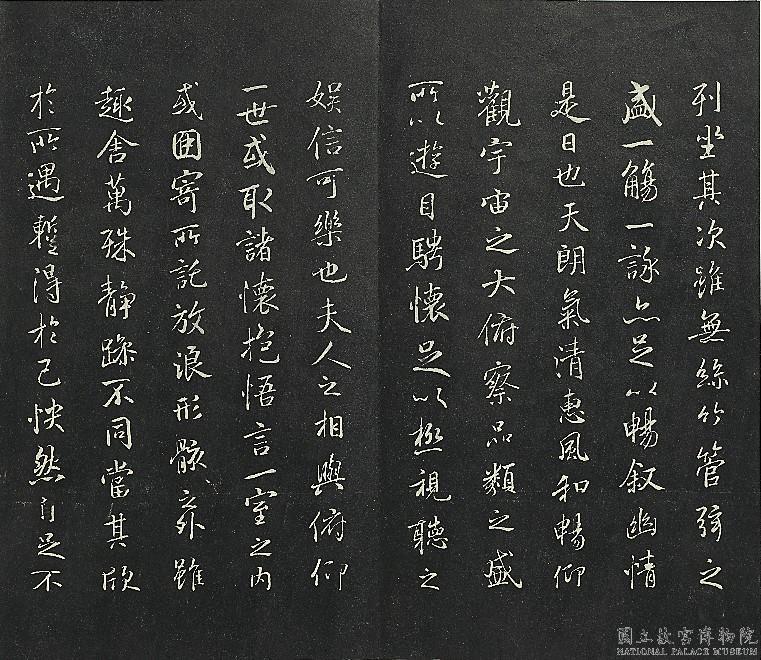 列坐其次雖無絲竹管弦之
盛一觴一詠亦足以暢敘幽情
是日也天朗氣清惠風和暢仰
觀宇宙之大俯察品類之盛
所以遊目騁懷足以極視聽之
娛信可樂也夫人之相與俯仰
一世或取諸懷抱悟言一室之內
或因寄所託放浪形骸之外雖
趣舍萬殊靜躁不同當其欣
於所遇蹔得於己怏然自足不
國立故宮博物院
NATIONAL PALACE MUSEUM